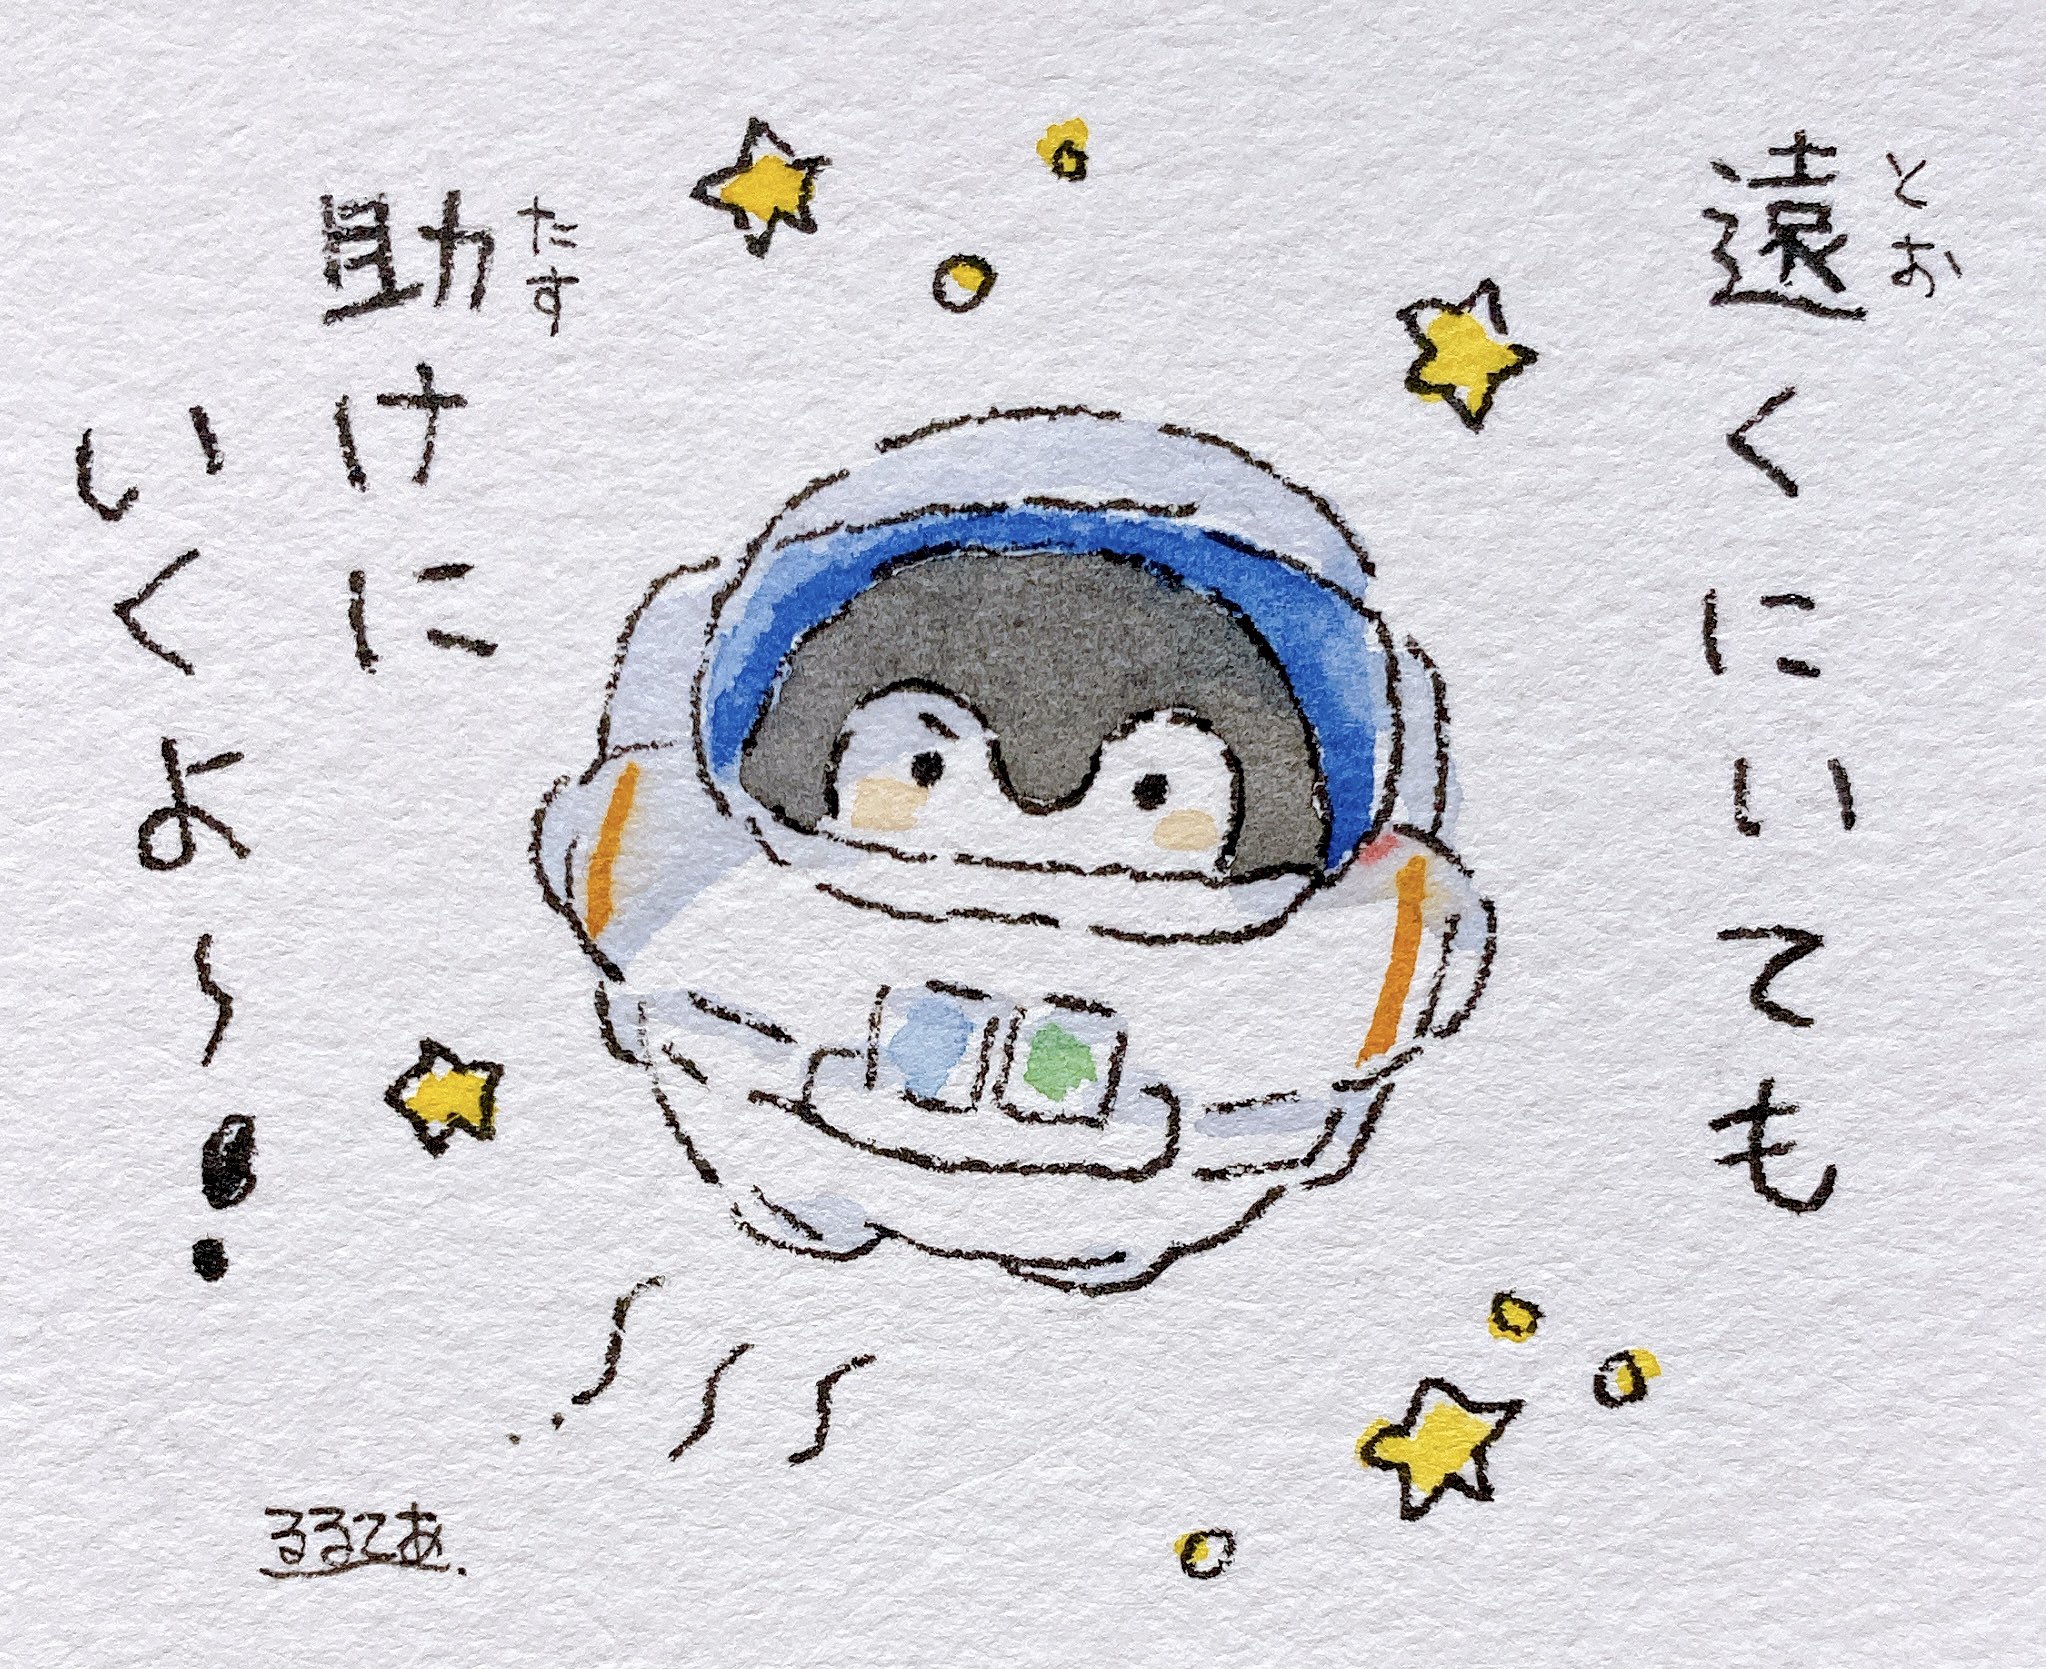 遠くにいても
とお
助けに
たす
いくよ〜!
るるてあ.